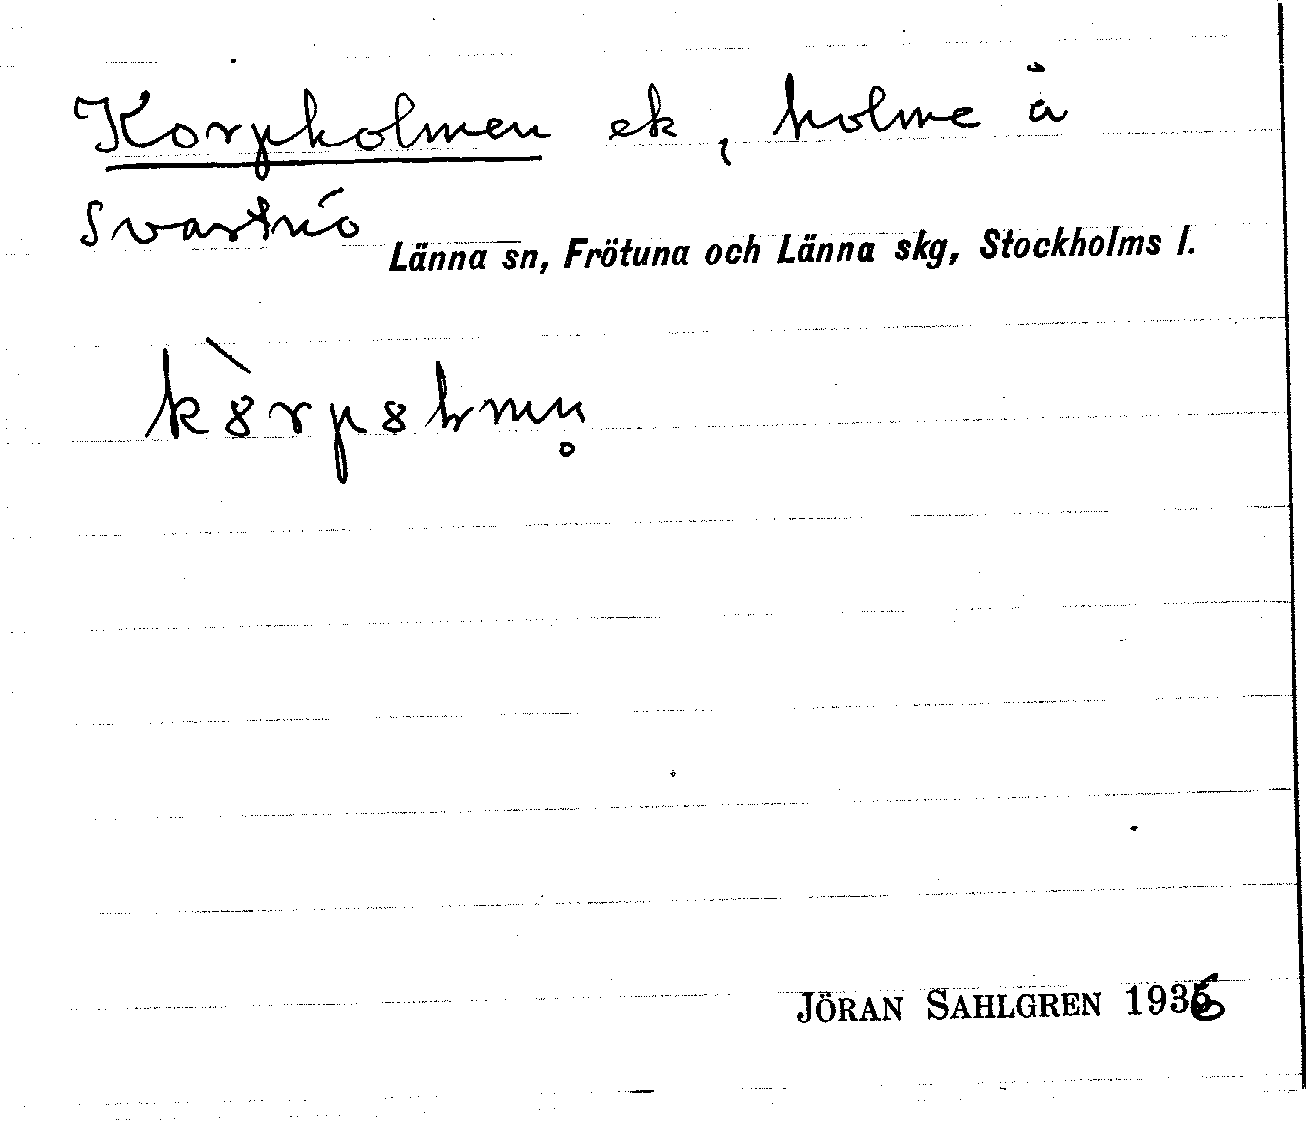 Korpholmen ek, holme å
Svartnö
Länna sn, Frötuna och Länna skg, Stockholms l.
kòrpolmn̥
JÖRAN SAHLGREN 1936